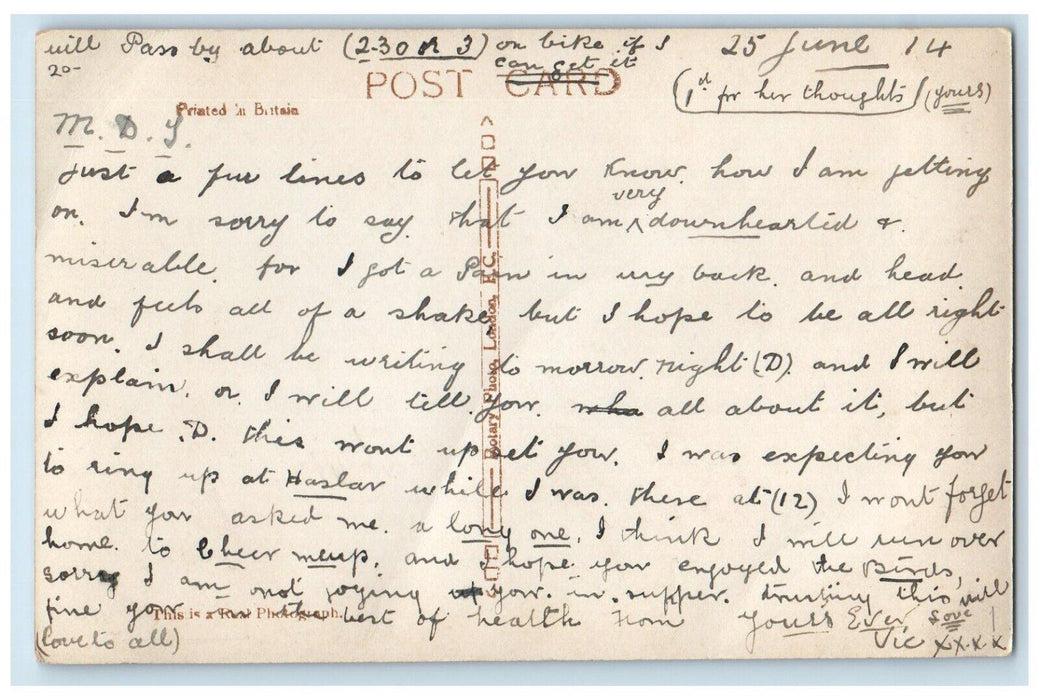 will Pass by about (2-30 or 3) on bike if I can get it
20-
25 June 14
(1st for her thoughts) (yours)
POST CARD
Printed in Britain
M. D. S.
Just a fur lines to let you know. how I am getting
on. I'm sorry to say. that I am very downhearted &.
miserable. for I got a Pain in my back. and head.
and feels all of a shake, but I hope to be all right
soon. I shall be writing to morrow. night (D). and I will
explain. or. I will tell. you. wha all about it, but
I hope. D. this wont upset you. I was expecting you
to ring up at Haslar while I was. there at (12) I wont forget
what you asked me. a long one. I think I will run over
home. to Cheer meup. and I hope you enjoyed the Birds,
sorry I am not joying you. in. supper. trusting this will
fine you the best of health From Yours Ever Love
(love to all)
Vic xx.x.x
Rotary Photo, London, E.C.
This is a Real Photograph.